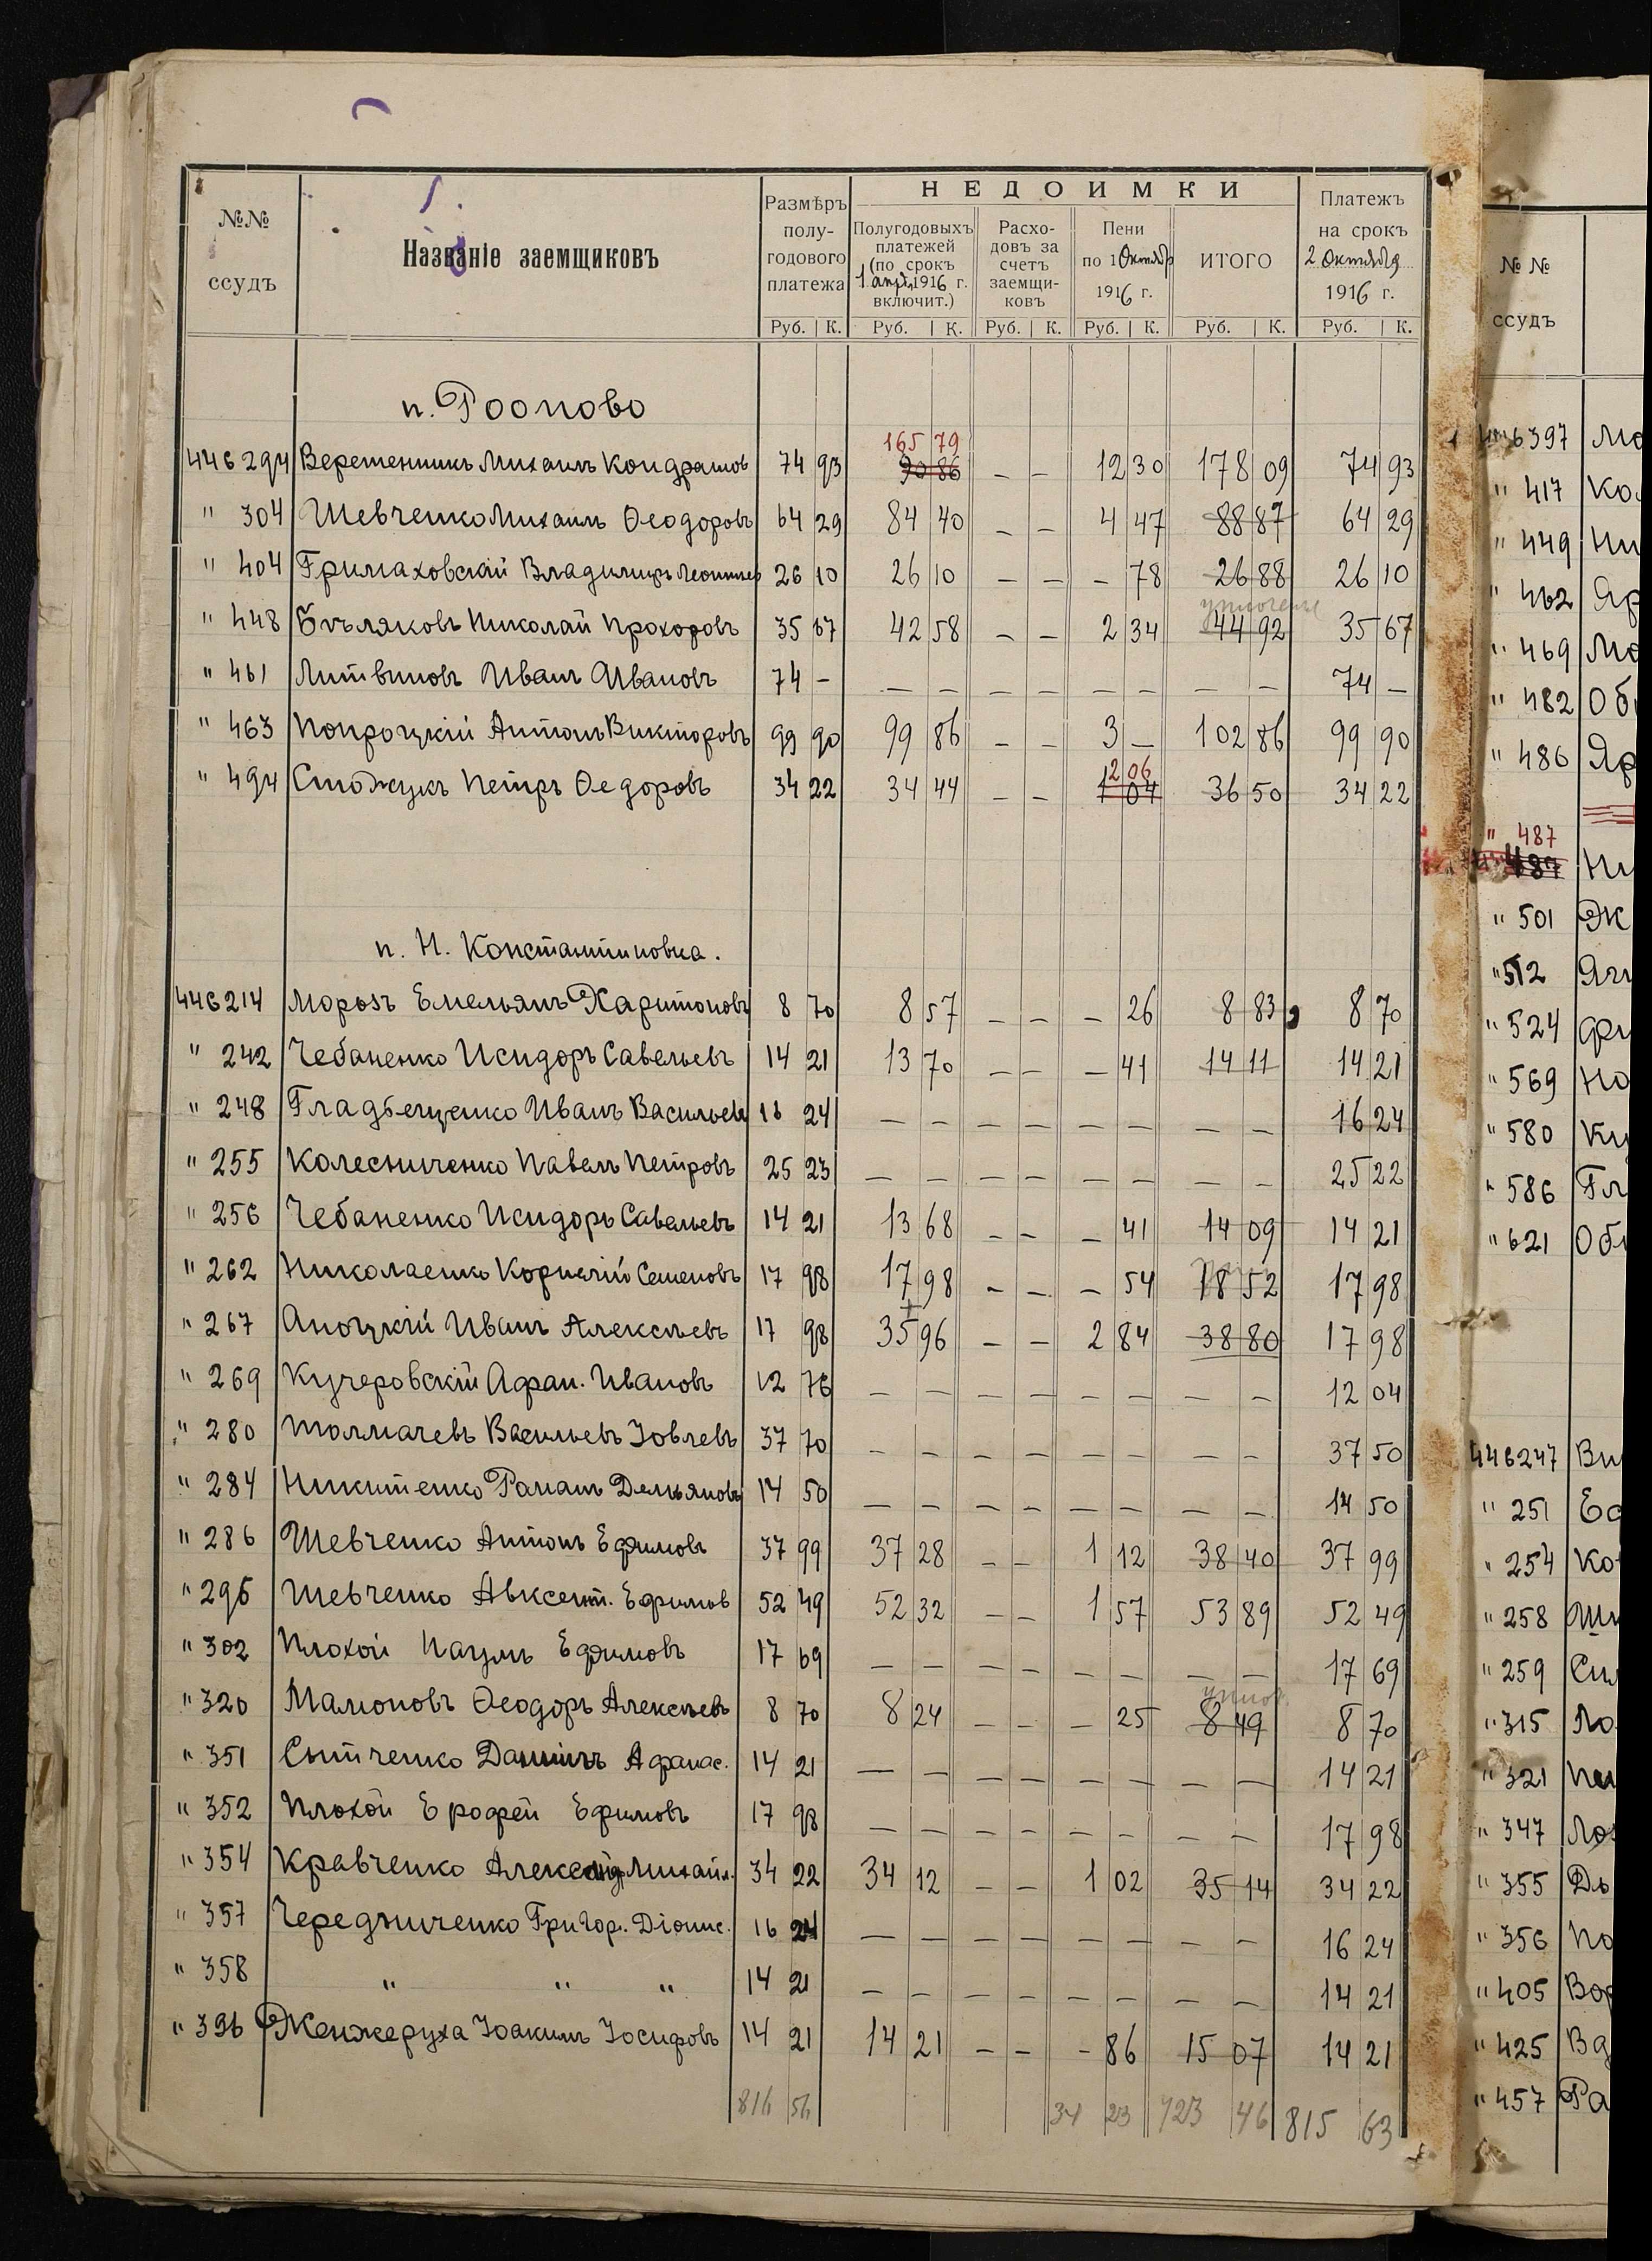 №№ ссудъ
Названіе заемщиковъ
Размѣръ полу-годового платежа
НЕДОИМКИ
Полугодовыхъ платежей (по срокъ 1 апр. 1916 г. включит.)
Расхо-довъ за счетъ заемщи-ковъ
Пени по 1 Октябр 1916 г.
ИТОГО
Платежъ на срокъ 2 октября 1916 г.
№ № ссудъ
Руб. К. Руб. К. Руб. К. Руб. К. Руб. К. Руб. К.
п. Роопово
165 79
446294 Веременникъ Михаилъ Кондратов 74 93 90 86 – – 12 30 178 09 74 93
" 304 Шевченко Михаилъ Ѳеодоровъ 64 29 84 40 – – 4 47 88 87 64 29
" 404 Гримаховскій Владимиръ 26 10 26 10 – – – 78 26 88 26 10
" 448 Бѣляковъ Николай Прохоровъ 35 67 42 58 – – 2 34 44 92 35 67
" 461 Литвиновъ Иванъ Ивановъ 74 – – – – – – – – – 74 –
" 463 Попроцкій Антонъ Викторовъ 99 90 99 86 – – 3 – 102 86 99 90
2 06
" 494 Стожукъ Петръ Ѳедоровъ 34 22 34 44 – – 1 04 36 50 34 22
п. Н. Константиновка.
446214 Морозъ Емельянъ Харитоновъ 8 70 8 57 – – – 26 8 83 8 70
" 242 Чебаненко Исидоръ Савельевъ 14 21 13 70 – – – 41 14 11 14 21
" 248 Иванъ Васильевъ 16 24 – – – – – – – – 16 24
" 255 Колесниченко Павелъ Петровъ 25 23 – – – – – – – – 25 22
" 256 Чебаненко Исидоръ Савельевъ 14 21 13 68 – – – 41 14 09 14 21
" 262 Николаенко Корнелій Семеновъ 17 98 17 98 – – – 54 18 52 17 98
" 267 Аноцкій Иванъ Алексѣевъ 17 98 35 96 – – 2 84 38 80 17 98
" 269 Кучеровскій Афан. Ивановъ 12 76 – – – – – – – – 12 04
" 280 Толмачевъ Васильевъ Іовлевъ 37 70 – – – – – – – – 37 50
" 284 Никитенко Романъ Демьяновъ 14 50 – – – – – – – – 14 50
" 286 Шевченко Антонъ Ефимовъ 37 99 37 28 – – 1 12 38 40 37 99
" 296 Шевченко Авксент. Ефимов 52 49 52 32 – – 1 57 53 89 52 49
" 302 Плохой Наумъ Ефимовъ 17 69 – – – – – – – – 17 69
" 320 Мамоновъ Ѳеодоръ Алексѣевъ 8 70 8 24 – – – 25 8 49 8 70
" 351 Сытченко Даніилъ Афанас. 14 21 – – – – – – – – 14 21
" 352 Плохой Ерофей Ефимовъ 17 98 – – – – – – – – 17 98
" 354 Кравченко Михайл. 34 22 34 12 – – 1 02 35 14 34 22
" 357 Чередниченко Григор. Діонис. 16 24 – – – – – – – – 16 24
" 358 " " " 14 21 – – – – – – – – 14 21
" 396 Женжеруха Іоакимъ Іосифовъ 14 21 14 21 – – – 86 15 07 14 21
816 56 34 23 723 46 815 63
446397 Мо
" 417 Ко
" 449 Ни
" 462 Яр
" 469 Мо
" 482 Об
" 486 Яр
" 487
" 487 Ни
" 501 Ж
" 512 Яг
" 524 Фр
" 569 Но
" 580 Ку
" 586 Гл
" 621 Об
446247 Ви
" 251 Ео
" 254 Ко
" 258 Ши
" 259 Си
" 315 Ло
" 321
" 347 Ло
" 355 Дь
" 356 По
" 405 Вор
" 425 Вд
" 457 Ра